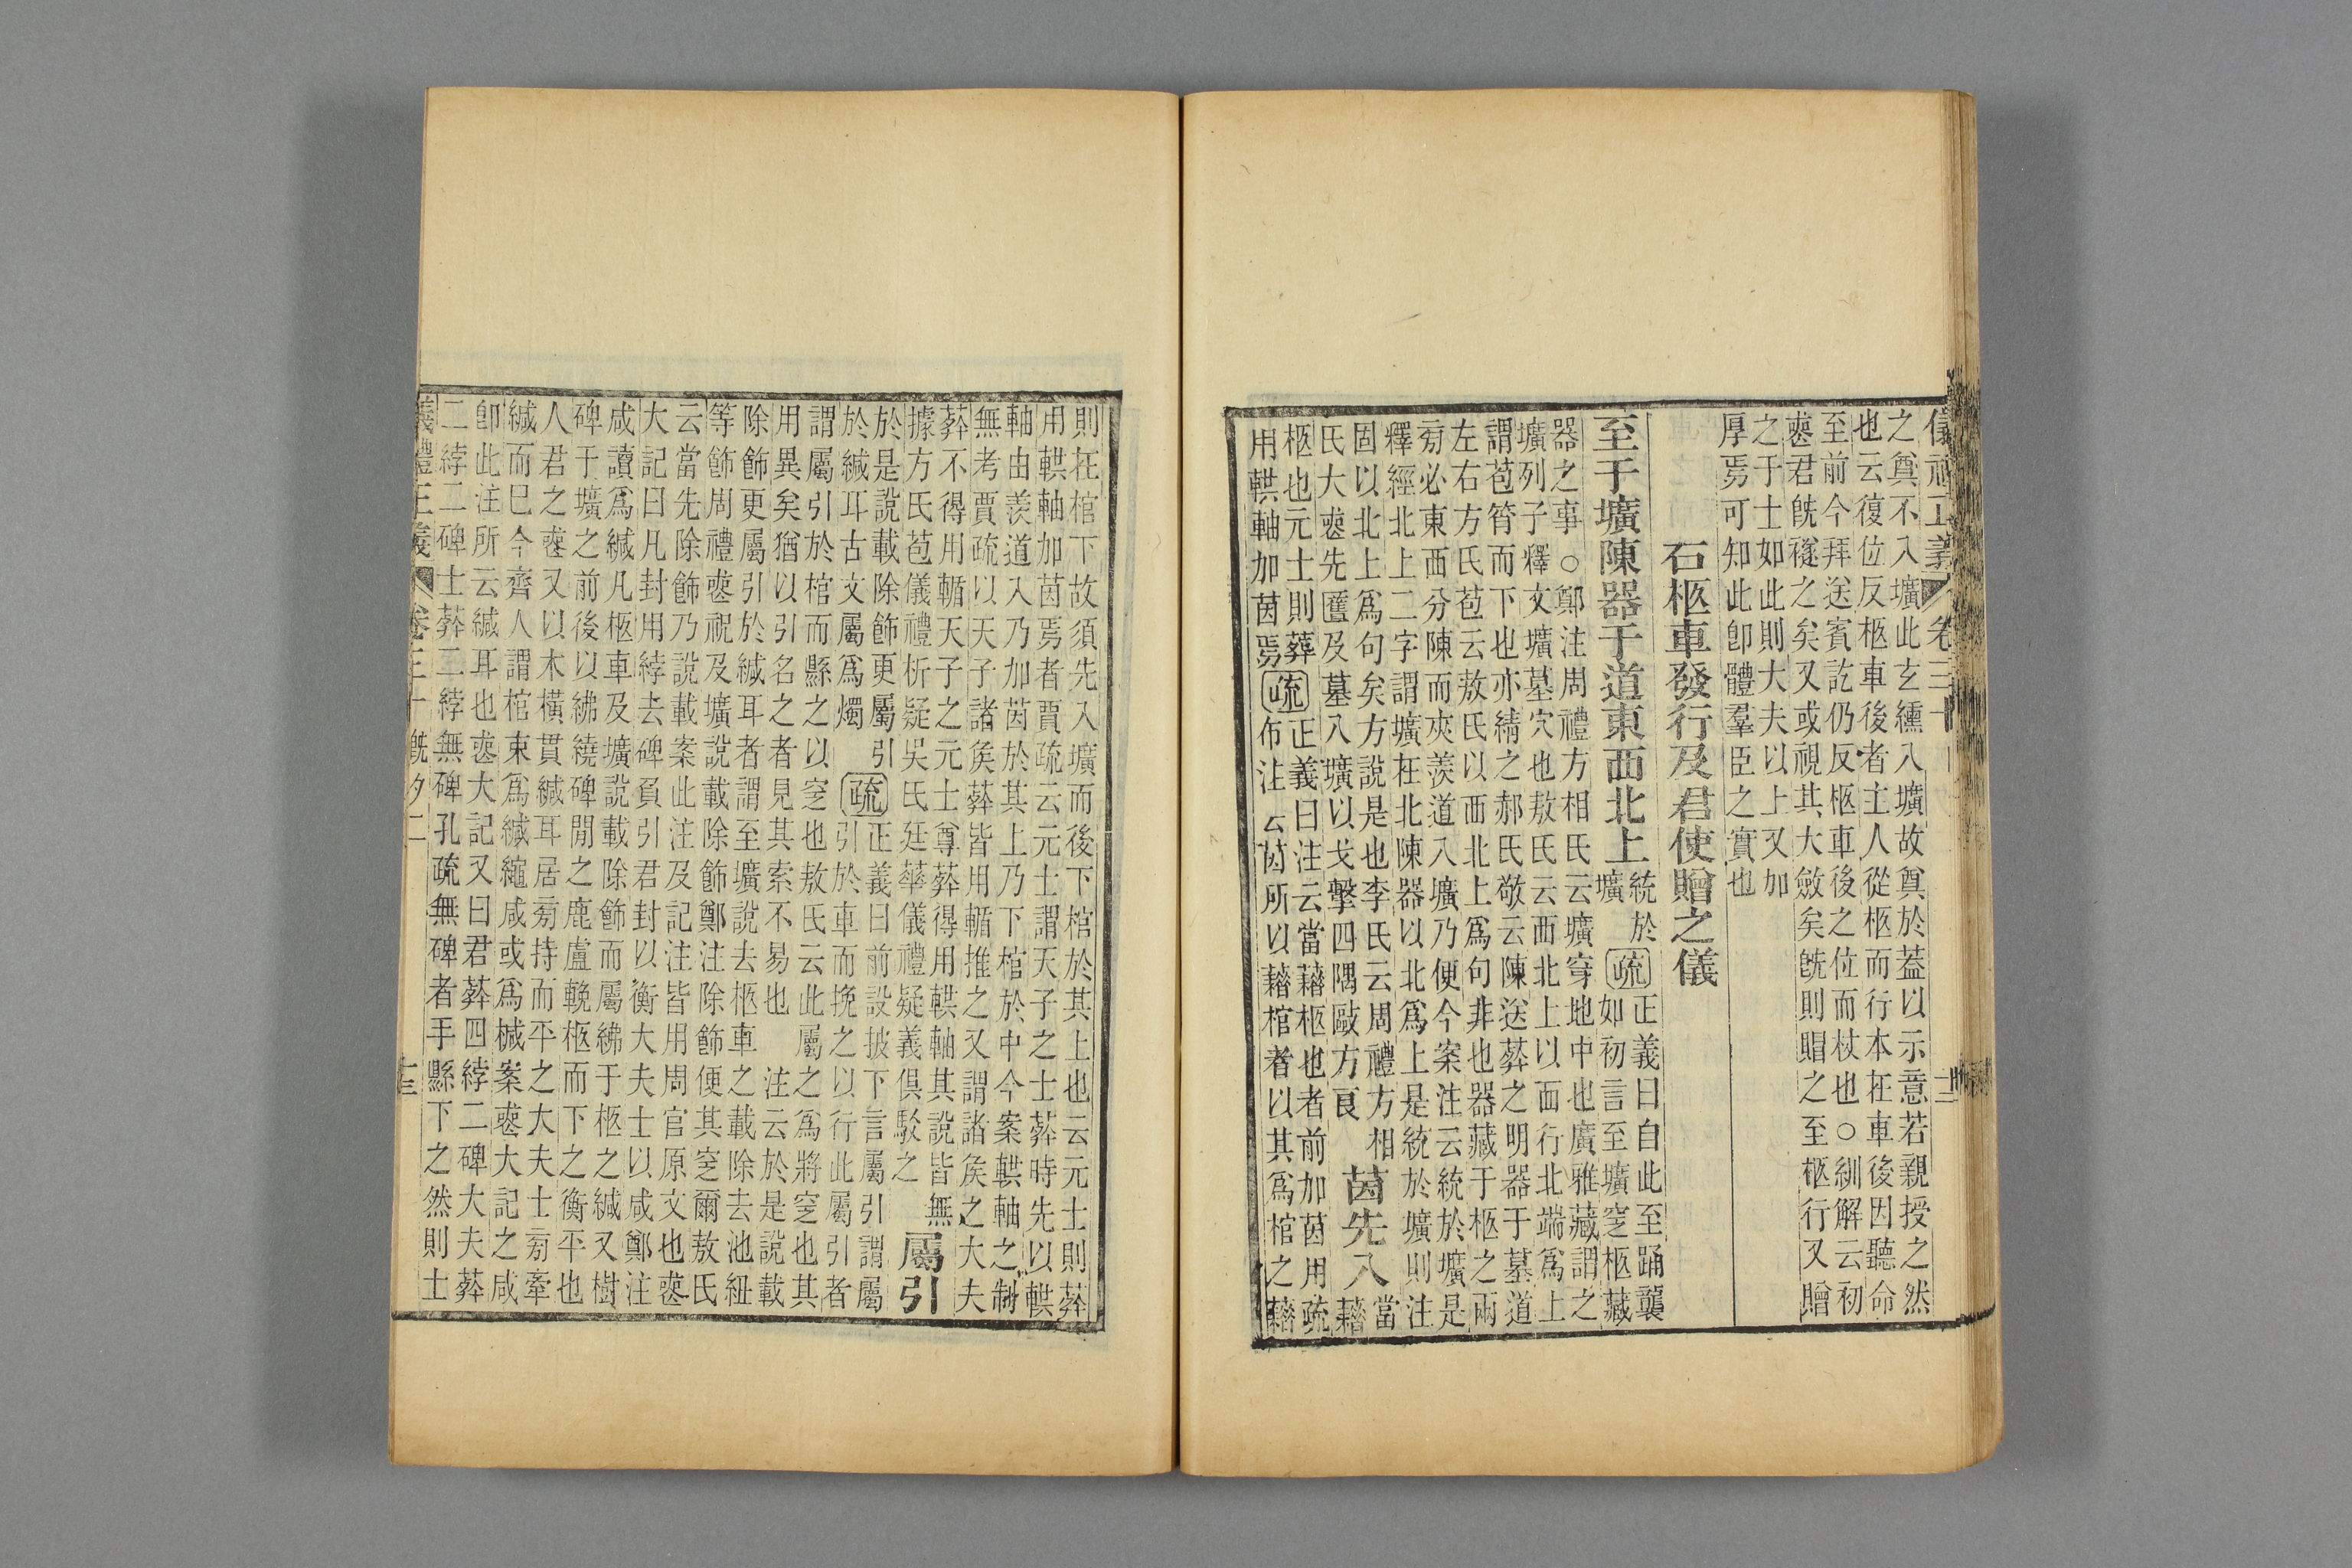 儀禮正義 卷三十
之奠不入壙此玄纁入壙故奠於蓋以示意若親授之然
也云復位反柩車後者主人從柩而行本在車後因聽命
至前今拜送賓訖仍反柩車後之位而杖也○紃解云初
喪君旣襚之矣又或視其大斂矣旣則賵之至柩行又贈
之于士如此則大夫以上又加
厚焉可知此卽體羣臣之實也
右柩車發行及君使贈之儀
至于壙陳器于道東西北上
統於
壙
疏
正義曰自此至踊襲
如初言至壙窆柩藏
器之事○鄭注周禮方相氏云壙穿地中也廣雅藏謂之
壙列子釋文壙墓穴也敖氏云西北上以西行北端爲上
謂苞筲而下也亦綪之郝氏敬云陳送葬之明器于墓道
左右方氏苞云敖氏以西北上爲句非也器藏于柩之兩
旁必東西分陳而夾羨道入壙乃便今案注云統於壙是
釋經北上二字謂壙在北陳器以北爲上是統於壙則注
固以北上爲句矣方說是也李氏云周禮方相
氏大喪先匶及墓入壙以戈擊四隅敺方良
茵先入
當
藉
柩也元士則葬
用輁軸加茵焉
疏
正義曰注云當藉柩也者前加茵用疏
布注云茵所以藉棺者以其爲棺之藉
則在棺下故須先入壙而後下棺於其上也云元士則葬
用輁軸加茵焉者賈疏云元士謂天子之士葬時先以輁
軸由羨道入乃加茵於其上乃下棺於中今案輁軸之制
無考賈疏以天子諸侯葬皆用輴推之又謂諸侯之大夫
葬不得用輴天子之元士尊葬得用輁軸其說皆無
據方氏苞儀禮析疑吳氏廷華儀禮疑義俱駁之
屬引
於是說載除飾更屬引
於緘耳古文屬爲燭
疏
正義曰前設披下言屬引謂屬
引於車而挽之以行此屬引者
謂屬引於棺而縣之以窆也敖氏云此屬之爲將窆也其
用異矣猶以引名之者見其索不易也 注云於是說載
除飾更屬引於緘耳者謂至壙說去柩車之載除去池紐
等飾周禮喪祝及壙說載除飾鄭注除飾便其窆爾敖氏
云當先除飾乃說載案此注及記注皆用周官原文也喪
大記曰凡封用綍去碑負引君封以衡大夫士以咸鄭注
咸讀爲緘凡柩車及壙說載除飾而屬紼于柩之緘又樹
碑于壙之前後以紼繞碑閒之鹿盧輓柩而下之衡平也
人君之喪又以木橫貫緘耳居旁持而平之大夫士旁牽
緘而已今齊人謂棺束爲緘繩咸或爲椷案喪大記之咸
卽此注所云緘耳也喪大記又曰君葬四綍二碑大夫葬
二綍二碑士葬二綍無碑孔疏無碑者手縣下之然則士
儀禮正義 卷三十 旣夕二
十三